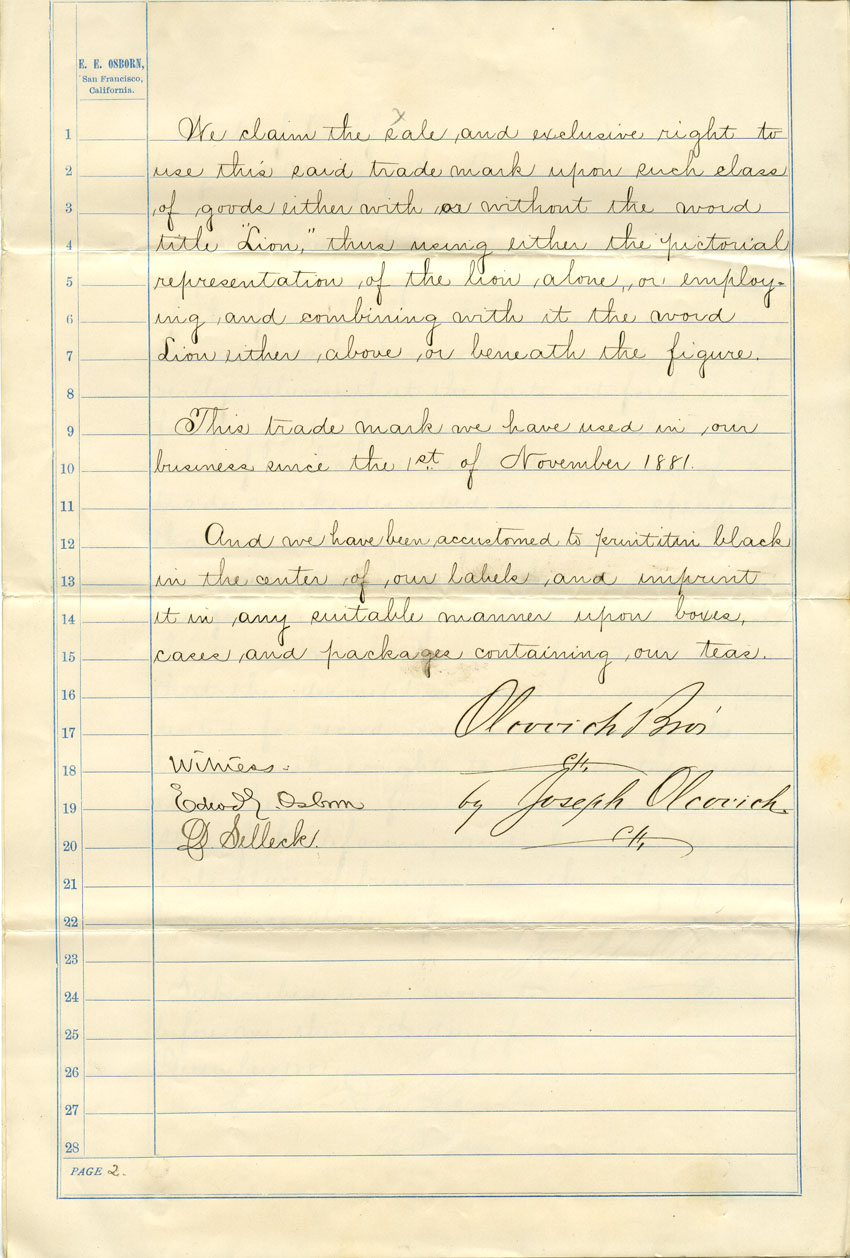 E. E. OSBORN,
San Francisco,
California.
x
1 We claim the sale and exclusive right to
2 use this said trade mark upon such class
3 of goods either with or without the word
4 title "Lion," thus using either the pictorial
5 representation of the lion alone, or employ-
6 ing and combining with it the word
7 Lion either above or beneath the figure.
8
9 This trade mark we have used in our
10 business since the 1st. of November 1881.
11
12 And we have been accustomed to print it in black
13 in the center of our labels, and imprint
14 it in any suitable manner upon boxes,
15 cases and packages containing our teas.
16
17 Olcovich Bros
18 Witness:
19 Edwd E. Osborn by Joseph Olcovich
20 D. Selleck.
21
22
23
24
25
26
27
28
PAGE 2.